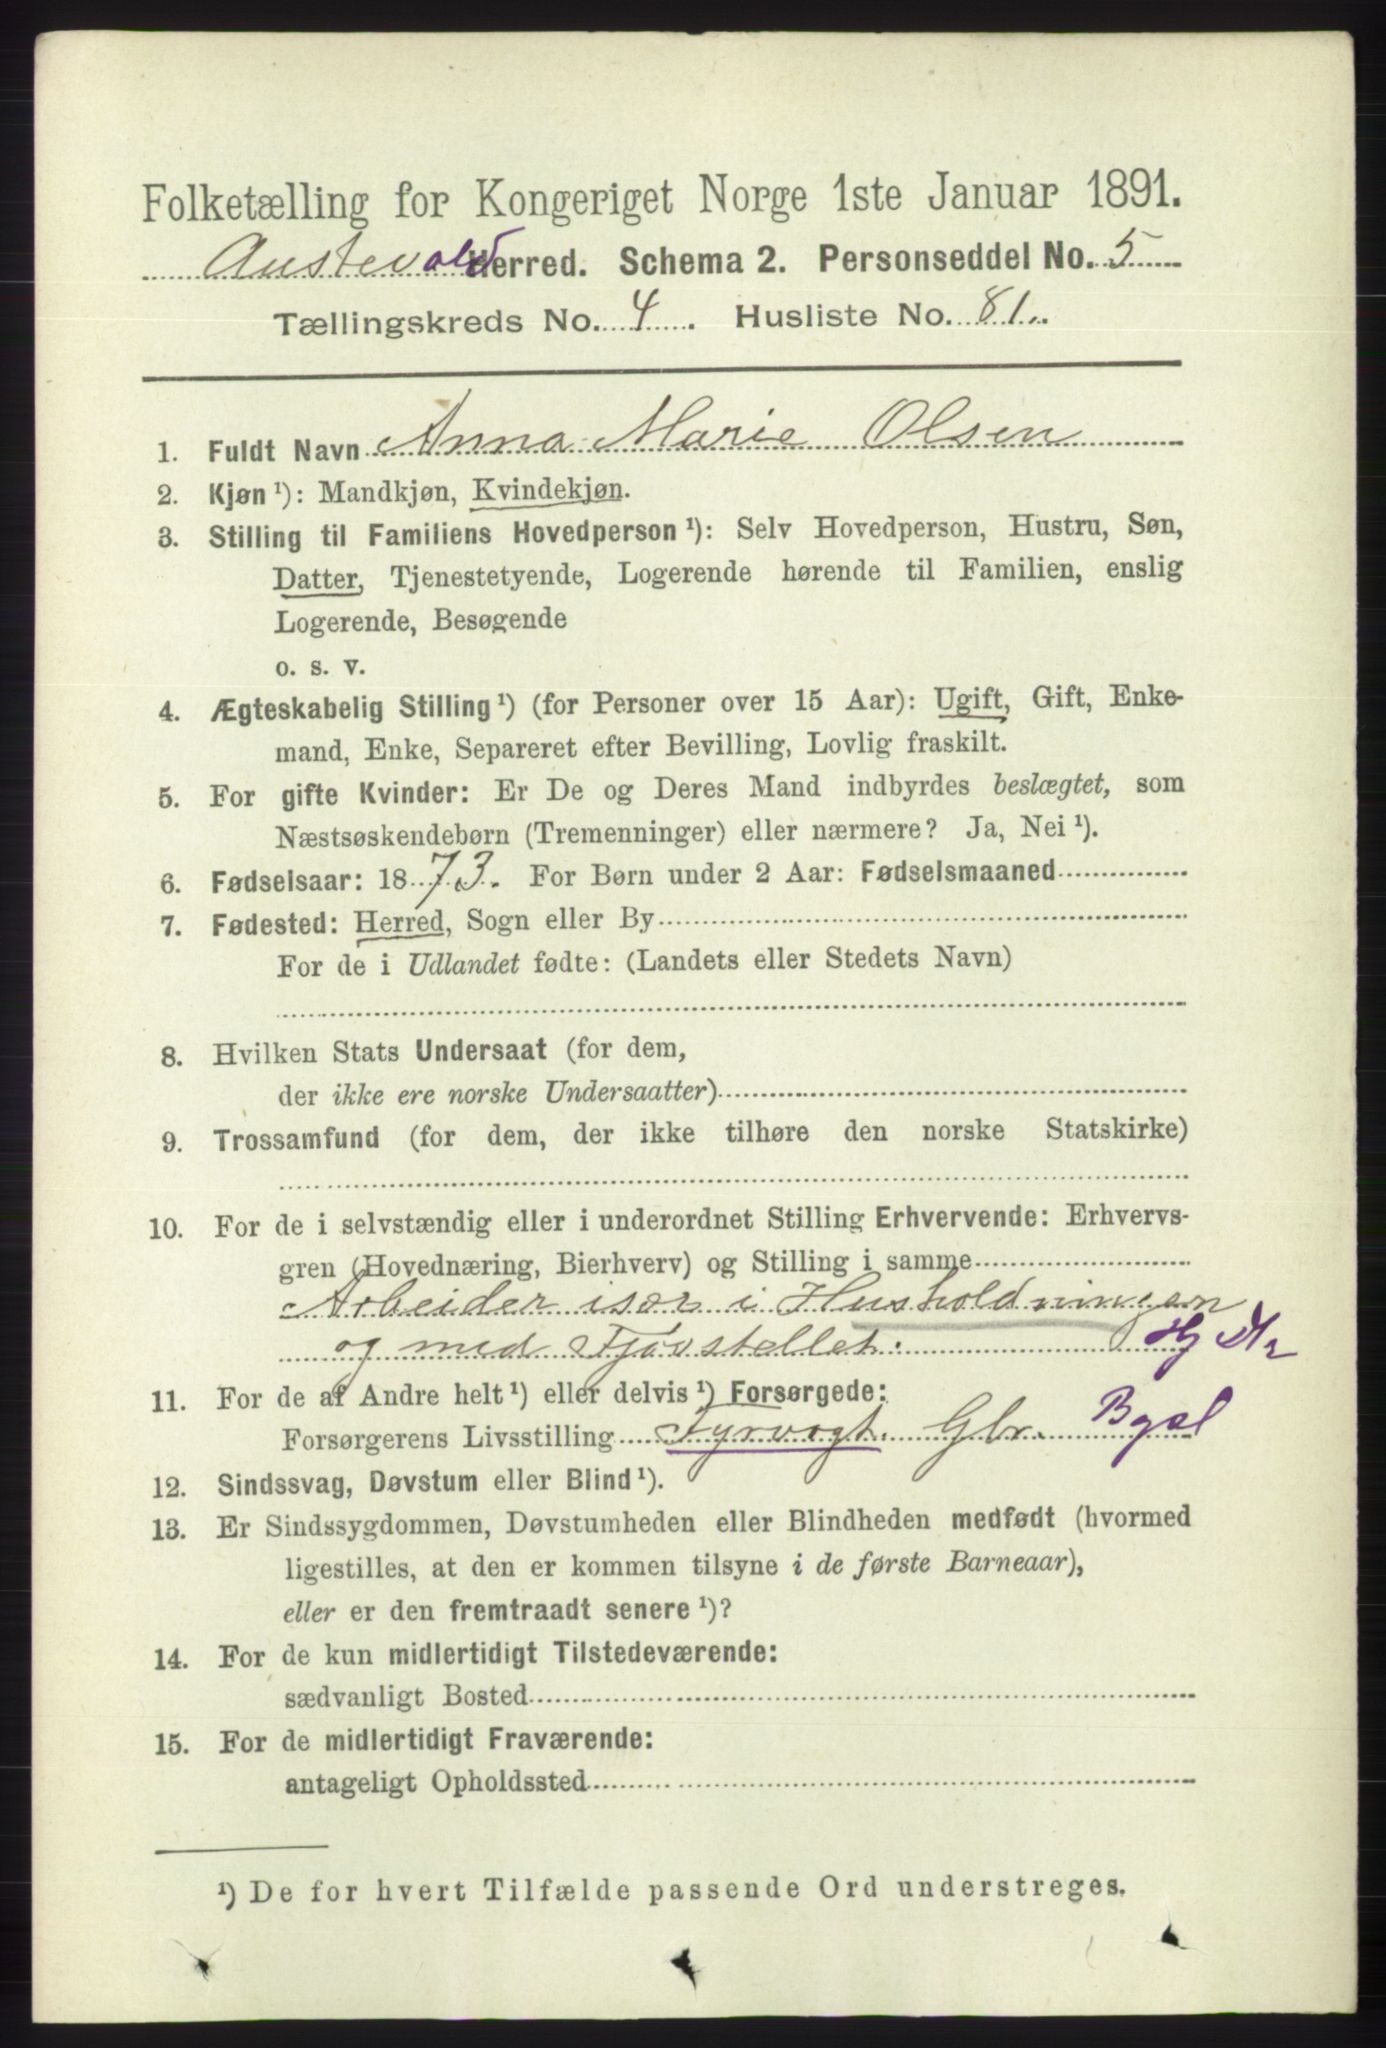 Folketælling for Kongeriget Norge 1ste Januar 1891.
Austevold Herred. Schema 2. Personseddel No. 5
Tællingskreds No. 4. Husliste No. 81.
1. Fuldt Navn Anna Marie Olsen
2. Kjøn ¹): Mandkjøn, Kvindekjøn.
3. Stilling til Familiens Hovedperson ¹): Selv Hovedperson, Hustru, Søn,
Datter, Tjenestetyende, Logerende hørende til Familien, enslig
Logerende, Besøgende
o. s. v.
4. Ægteskabelig Stilling ¹) (for Personer over 15 Aar): Ugift, Gift, Enke-
mand, Enke, Separeret efter Bevilling, Lovlig fraskilt.
5. For gifte Kvinder: Er De og Deres Mand indbyrdes beslægtet, som
Næstsøskendebørn (Tremenninger) eller nærmere? Ja, Nei ¹).
6. Fødselsaar: 1873. For Børn under 2 Aar: Fødselsmaaned
7. Fødested: Herred, Sogn eller By
For de i Udlandet fødte: (Landets eller Stedets Navn)
8. Hvilken Stats Undersaat (for dem,
der ikke ere norske Undersaatter)
9. Trossamfund (for dem, der ikke tilhøre den norske Statskirke)
10. For de i selvstændig eller i underordnet Stilling Erhvervende: Erhvervs-
gren (Hovednæring, Bierhverv) og Stilling i samme
Arbeider især i Husholdningen
og med Fjøsstellet. Hj
11. For de af Andre helt ¹) eller delvis ¹) Forsørgede:
Forsørgerens Livsstilling Fyrvogt. Gbr.
12. Sindssvag, Døvstum eller Blind ¹).
13. Er Sindssygdommen, Døvstumheden eller Blindheden medfødt (hvormed
ligestilles, at den er kommen tilsyne i de første Barneaar),
eller er den fremtraadt senere ¹)?
14. For de kun midlertidigt Tilstedeværende:
sædvanligt Bosted
15. For de midlertidigt Fraværende:
antageligt Opholdssted
¹) De for hvert Tilfælde passende Ord understreges.